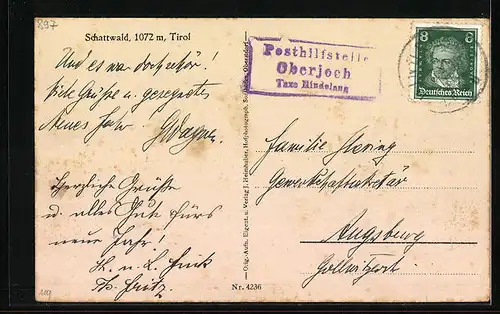 897
Schattwald, 1072 m, Tirol
Und es war doch schön!
Viele Grüße u. gesegnetes
Neues Jahr GWagner.
Herzliche Grüße
u. alles Gute fürs
neue Jahr!
H. u. L. Fink
Fritz.
Posthilfstelle
Oberjoch
Taxe Hindelang
8 8
Deutsches Reich
Familie
Gewerkschaftssekretär
Augsburg
Orig.-Aufn. Eigent. u. Verlag J. Heimhuber, Hofphotograph, Sonthofen, Oberstdorf.
Nr. 4236